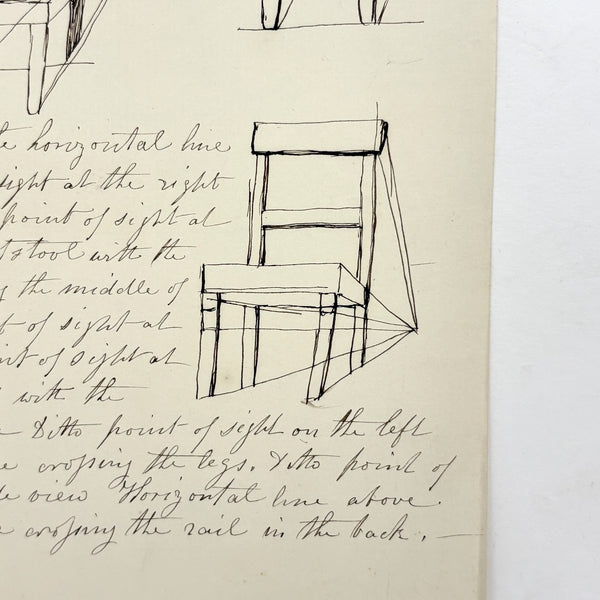 horizontal line
sight at the right
point of sight at
with the
the middle of
of sight at
point of sight at
with the
Ditto point of sight on the left
crossing the legs. Ditto point of
view Horizontal line above
crossing the rail in the back.